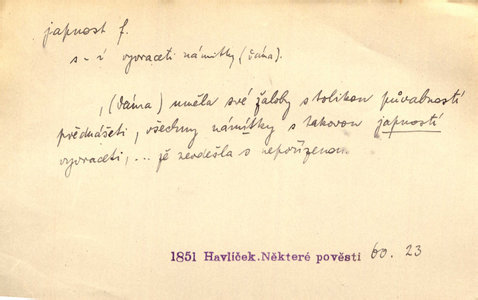 japnost f.
s-í vyvraceti námitky (dáma).
, (dáma) uměla své žaloby s tolikou půvabností
přednášeti, všechny námitky s takovou japností
vyvraceti, ... že neodešla s nepořízenou.
1851 Havlíček. Některé pověsti 60. 23